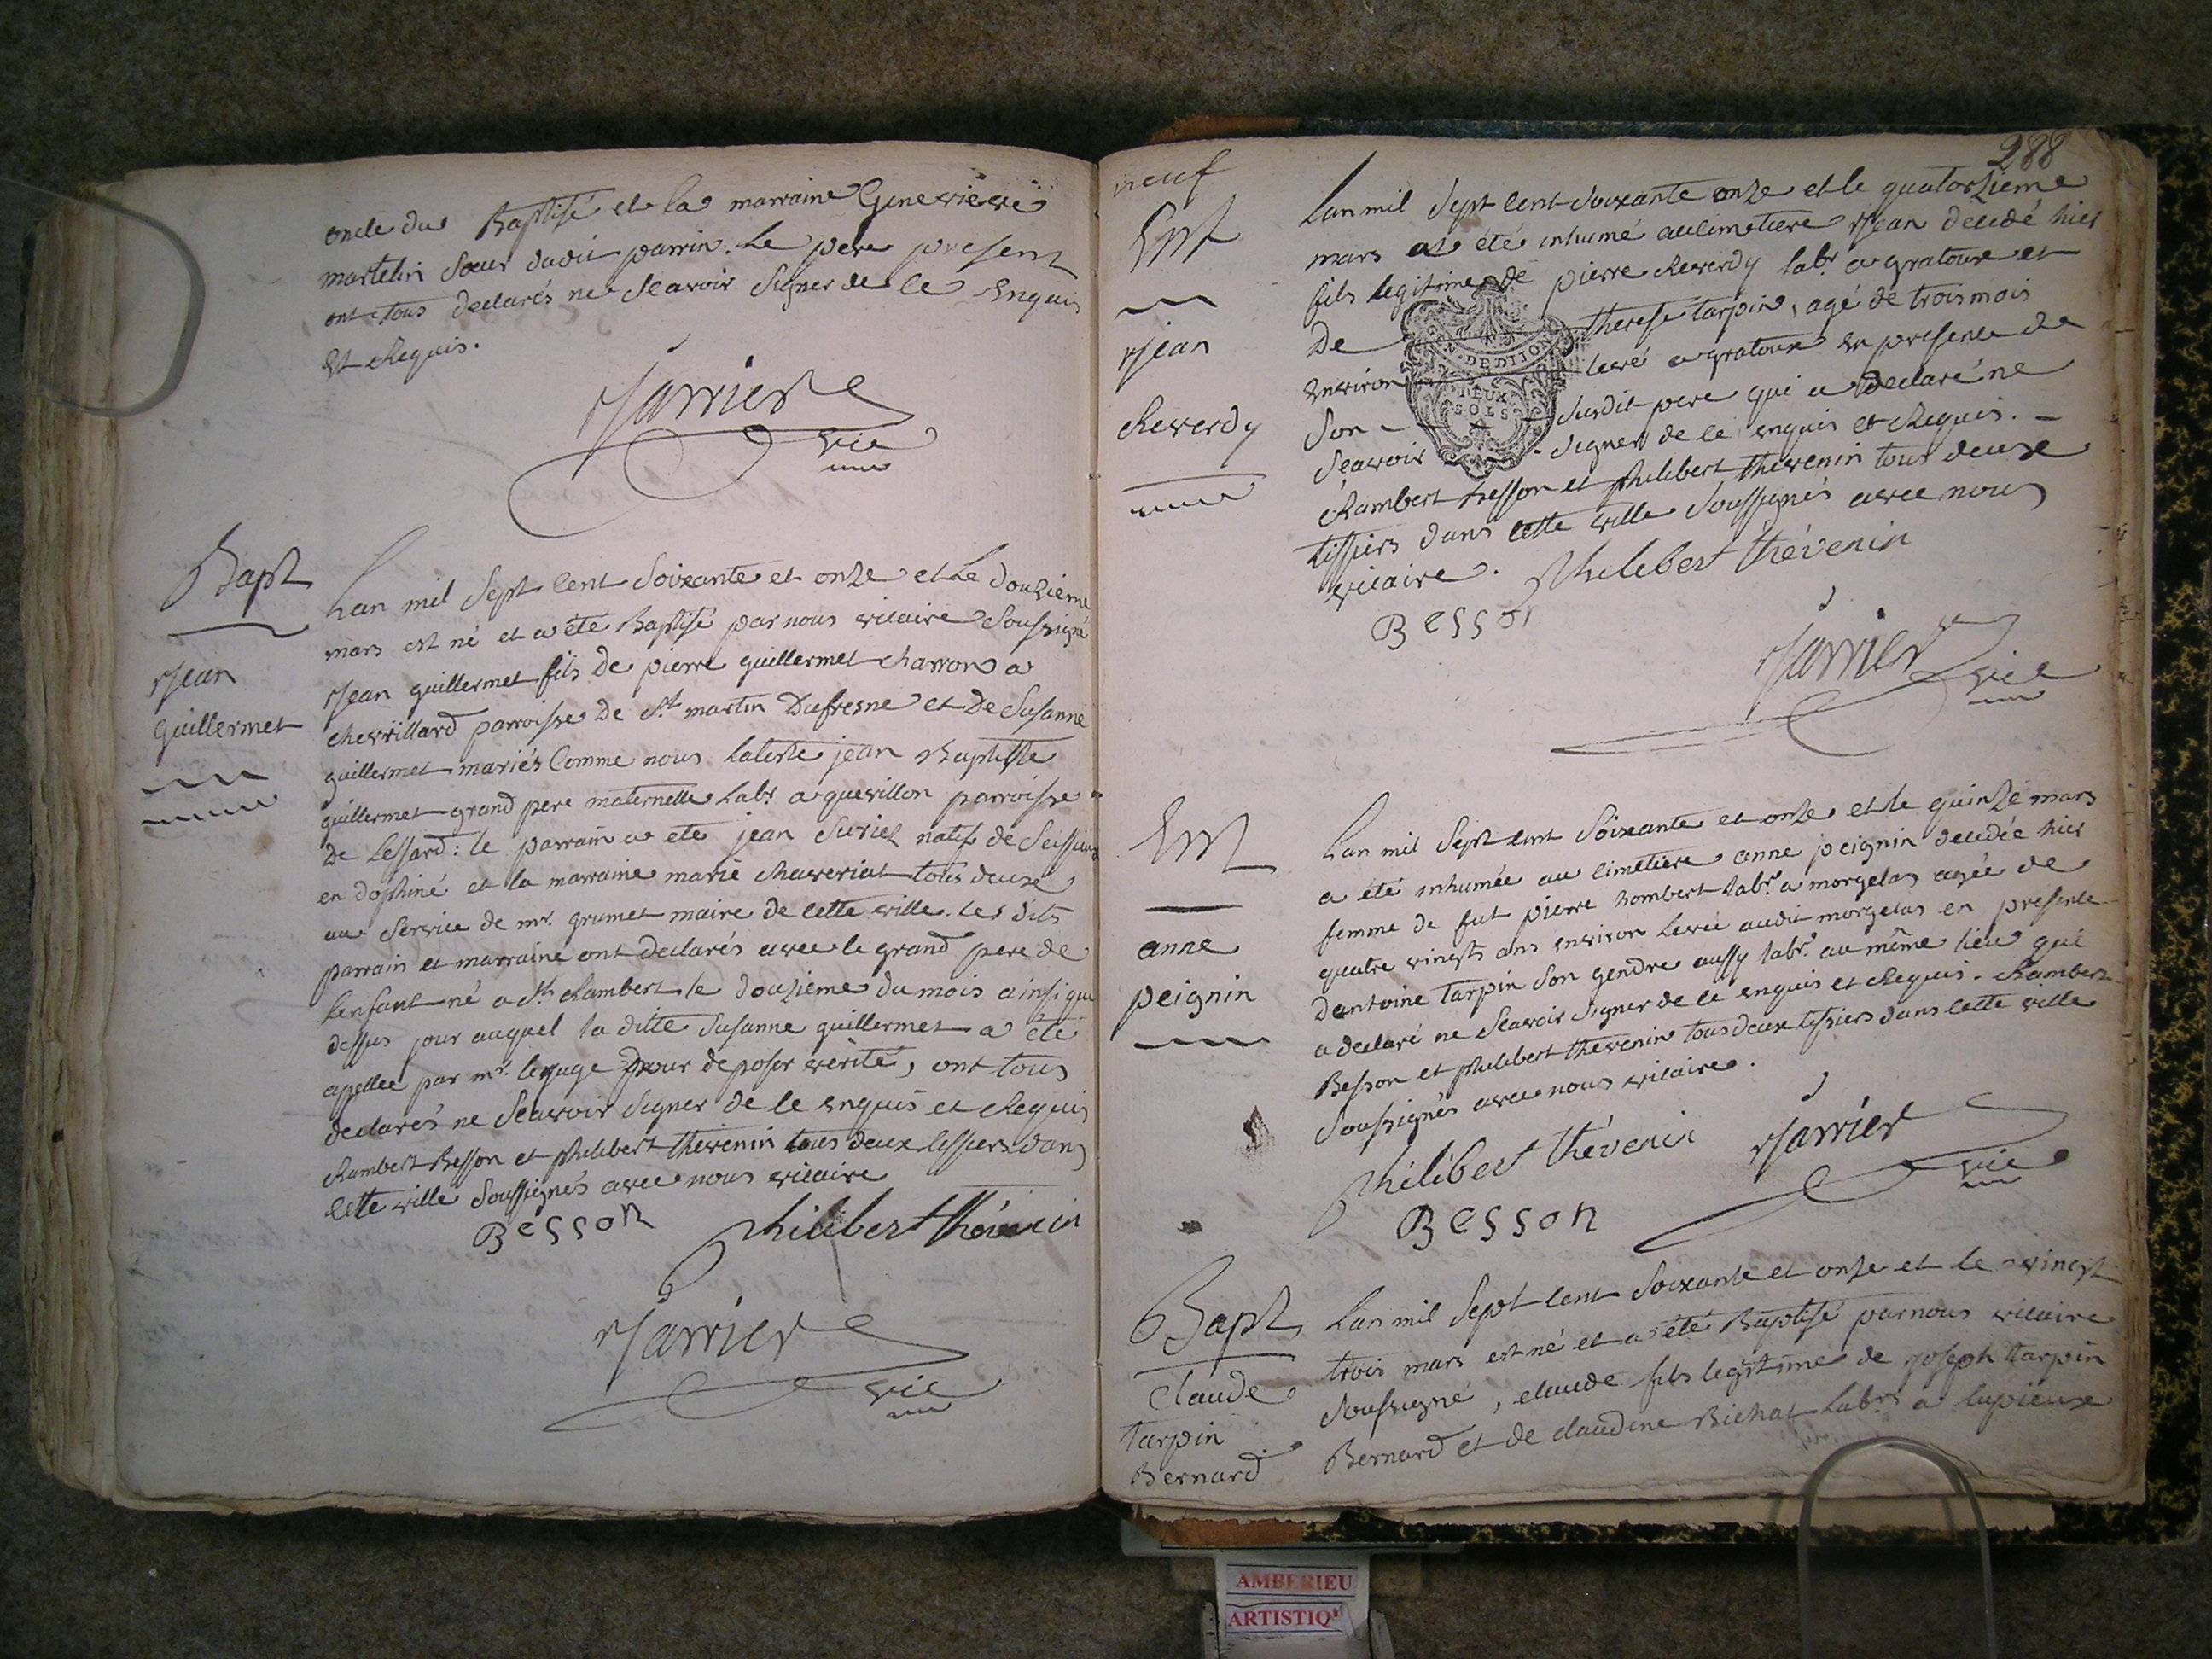 oncle du Baptisé et la marraine Genevieve
martelin Sœur dudit parrin. Le pere present
ont tous declarés ne Scavoir Signer de ce Enquis
Et Requis.
Jarrier
vic
Bapt
Jean
guillermet
Lan mil Sept Cent Soixante et onze et Le douzieme
mars est né et a été Baptisé par nous vicaire Soussigné
Jean guillermet fils de pierre guillermet charron a
chevrillard parroisse de St. martin Dufresne et de Susanne
guillermet mariés Comme nous Lateste jean Baptiste
guillermet grand pere maternelle Labr. a quevillon parroisse
de Lessard: le parrain a ete jean Suriel natif de
en dophiné et la marraine marie chaveriat tous deux
au Service de mr. grumet maire de cette ville. les dits
parrain et marraine ont declarés avec le grand pere de
lenfant né a St. Rambert le douzieme du mois ainsi que
dessus jour auquel la ditte Susanne guillermet a été
apellee par mr. lejuge pour deposer verité, ont tous
declarés ne Scavoir Signer de ce enquis et Requis
Rambert Besson et philibert thevenin tous deux tissiers dans
cette ville Soussignés avec nous vicaire
Besson philibert thévenin
Jarrier
vic
288
neuf
Ent
Jean
Reverdy
Lan mil Sept Cent Soixante onze et le quatorzieme
mars a été inhumé au cimetiere Jean decedé hier
fils legitime de pierre Reverdy labr. a gratoux et
De therese tarpin, agé de trois mois
environ levé a gratoux en presence de
Son Susdit pere qui a declaré ne
Scavoir Signer de ce enquis et Requis.
GN. DE DIJON
DEUX
SOLS
Rambert besson et philibert thevenin tous deux
tissiers dans cette ville Soussignés avec nous
vicaire. philibert thévenin
Besson
Jarrier
vic
Ent
anne
peignin
Lan mil Sept cent Soixante et onze et le quinze mars
a été inhumée au cimetiere anne peignin decedée hier
femme de fut pierre hombert labr. a morgelas agée de
quatre vingts ans environ Levée audit morgelas en presence
dantoine tarpin Son gendre aussy labr. au même lieu qui
a declaré ne Scavoir Signer de ce enquis et Requis. Rambert
Besson et philibert thevenin tous deux tissiers dans cette ville
Soussignés avec nous vicaire.
philibert thévenin Jarrier
vic
Besson
Bapt
Claude
tarpin
Bernard
Lan mil Sept cent Soixante et onze et le vingt
trois mars est né et a été Baptisé par nous vicaire
Soussigné, claude fils legitime de joseph tarpin
Bernard et de claudine Bichat Labrs a lupieux
AMBERIEU
ARTISTIQ